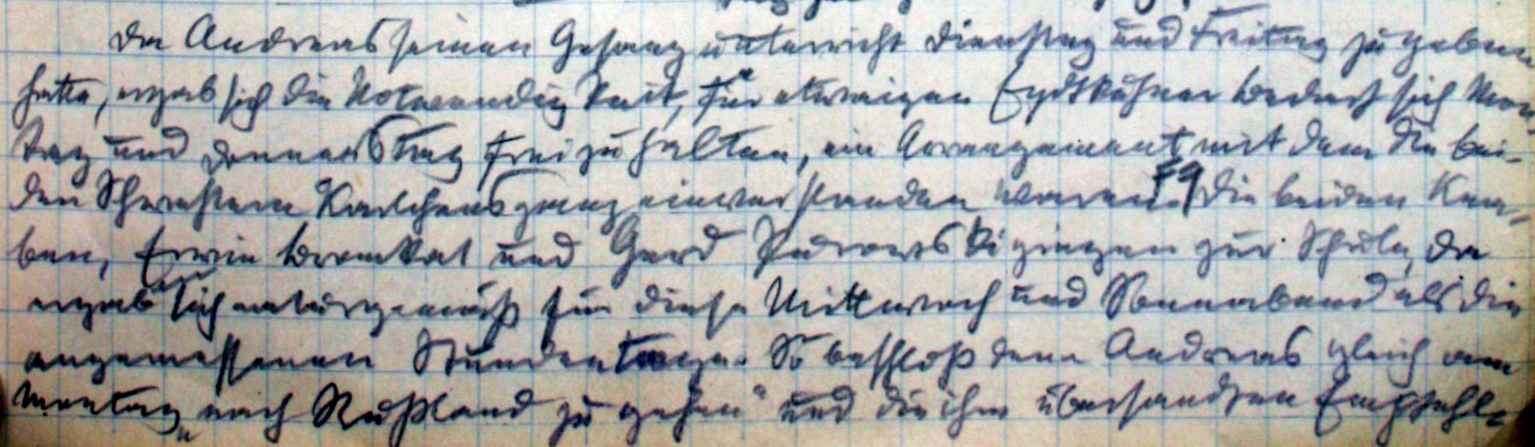 Da Andreas seinen Gesangunterricht Dienstag und Freitag zu geben
hatte, ergab sich die Notwendigkeit, für etwaigen Eydtkuhner Bedarf sich Mon
tag und Donnerstag frei zu halten, ein Arrangement mit dem die bei-
den Schwestern Karlchens ganz einverstanden waren. Die beiden Kna-
ben, Erwin und Gerd gingen zur Schule, da
ergab sich naturgemäß für diese Mittwoch und Sonnabend als die
angemessenen Stundentage. So beschloß denn Andreas gleich am
Montag „nach Rußland zu gehen" und die ihm übersandten Empfehl-